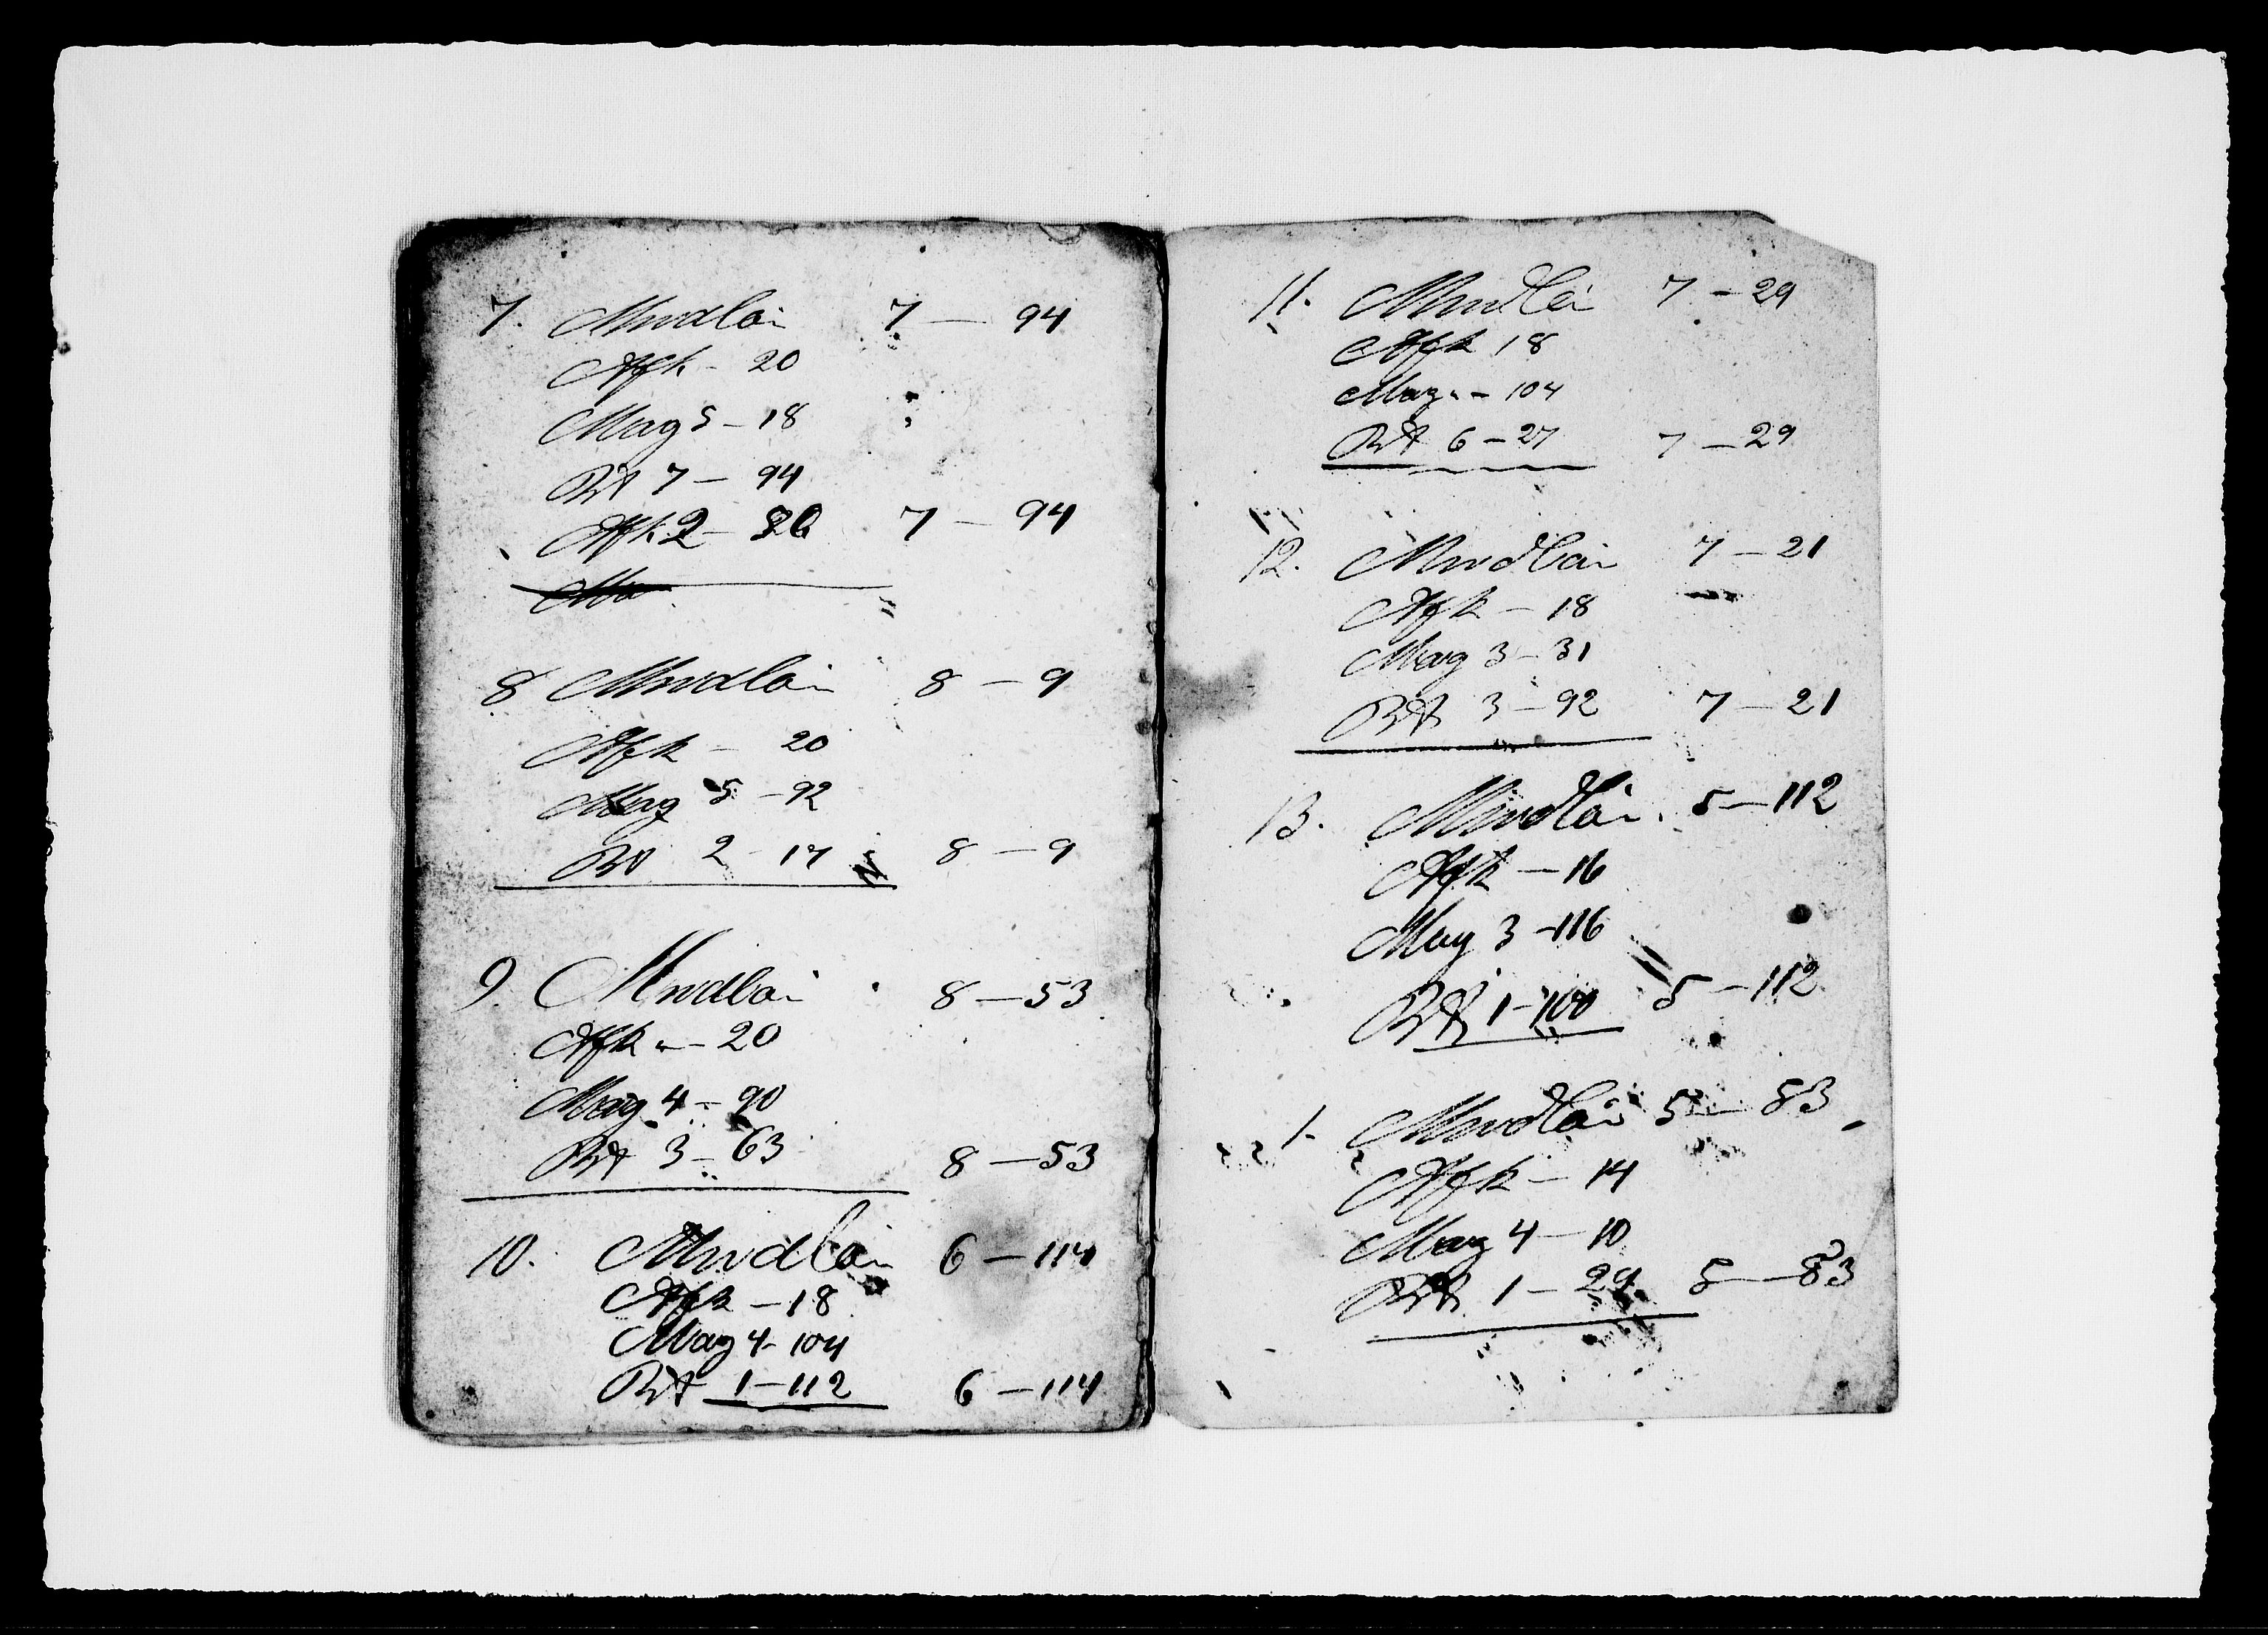 7. Mudlai 7 — 94
Afk - 20
Mag 5 - 18
Rst 7 — 94
Afk 2 - 36 7 — 94
Ma
8 Mudlai 8 — 9
Afk - 20
Mag 5 - 92
Rst 2 - 17 8 — 9
9. Mudlai 8 — 53
Afk „ - 20
Mag 4 - 90
Rst 3 - 63 8 — 53
10. Mudlai 6 — 114
Afk - 18
Mag 4 - 104
Rst 1 - 112 6 — 114
11. Mudlai 7 - 29
Afk 18
Mag „ - 104
Rst 6 - 27 7 - 29
12. Mudlai 7 - 21
Afk - 18
Mag 3 - 31
Rst 3 - 92 7 - 21
13. Mudlai 5 - 112
Afk - 16
Mag 3 - 116
Rst 1 - 100 5 - 112
1. Mudlai 5 - 53
Afk - 14
Mag 4 - 10
Rst 1 - 29 5 - 53